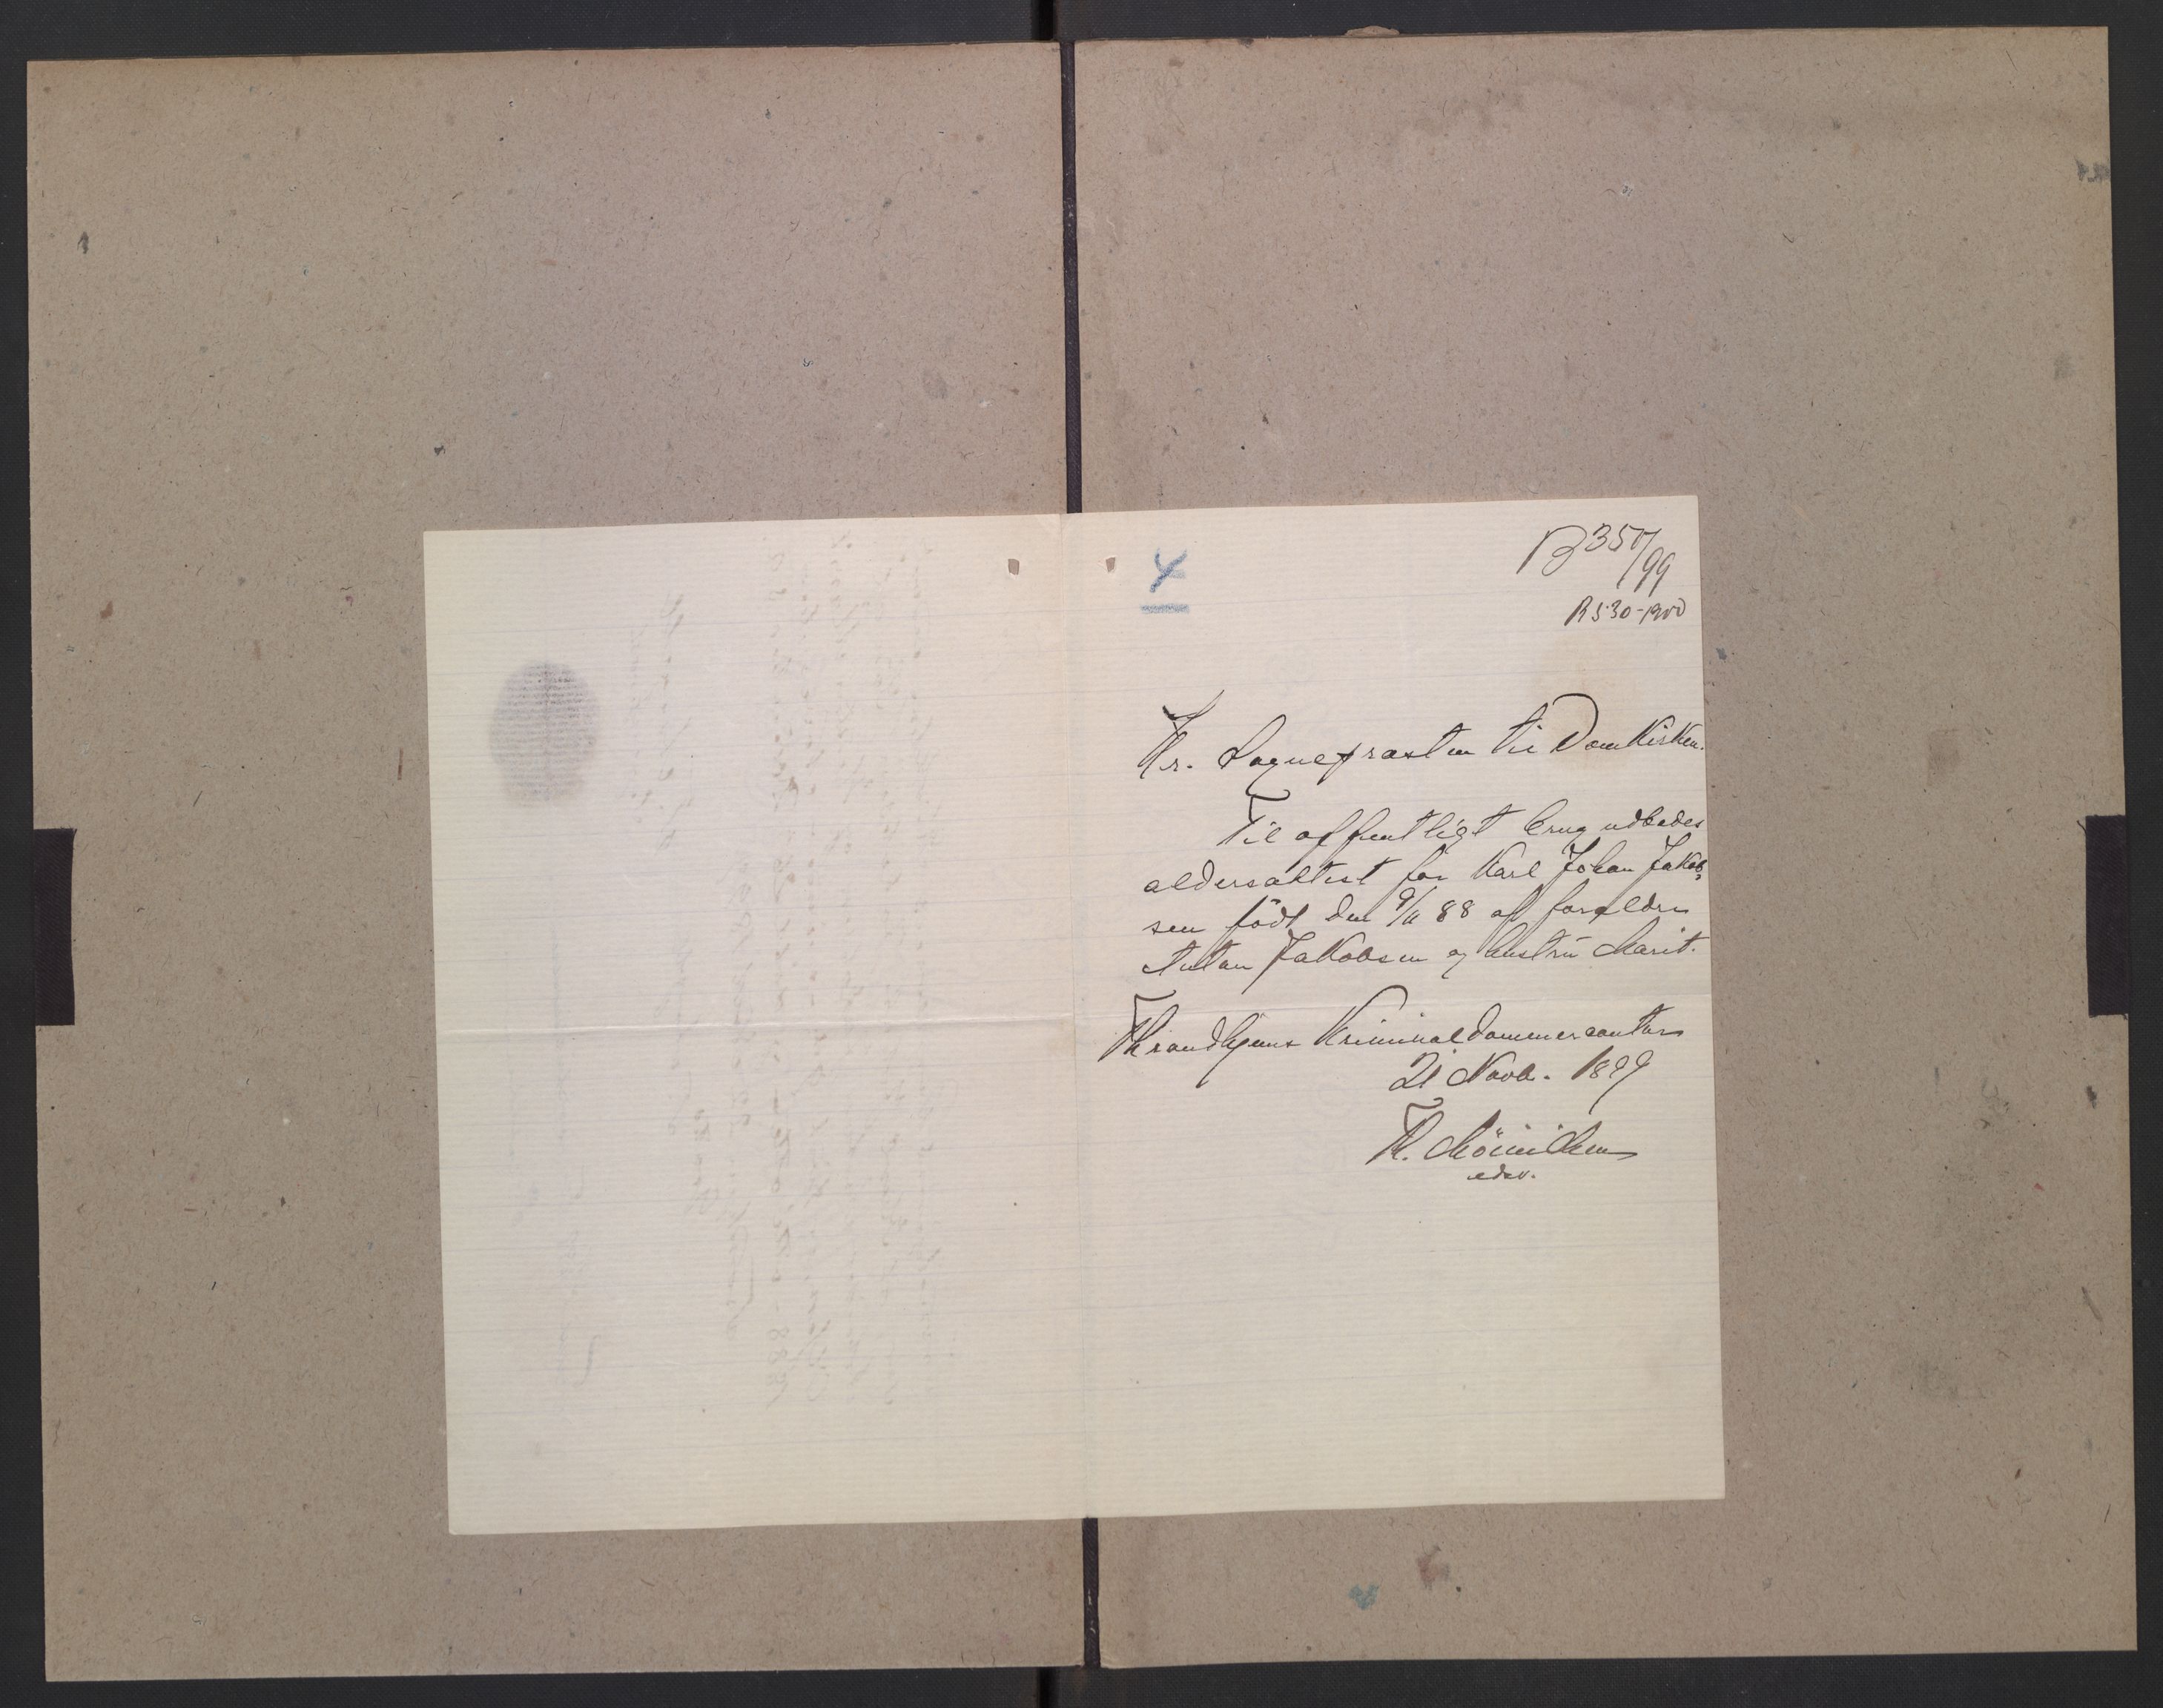 4
B 357/99
R 530-1900
Hr. Sogneprästen til Domkirken.
Til offentligt brug udbedes
aldersattest for Karl Johan Jakob-
sen född den 9/11 88 af forældre
Jakobsen og hustru Marit.
Throndhjems Kriminaldommercontor
21 Novb. 1899
Th. Mönichen
edsv.